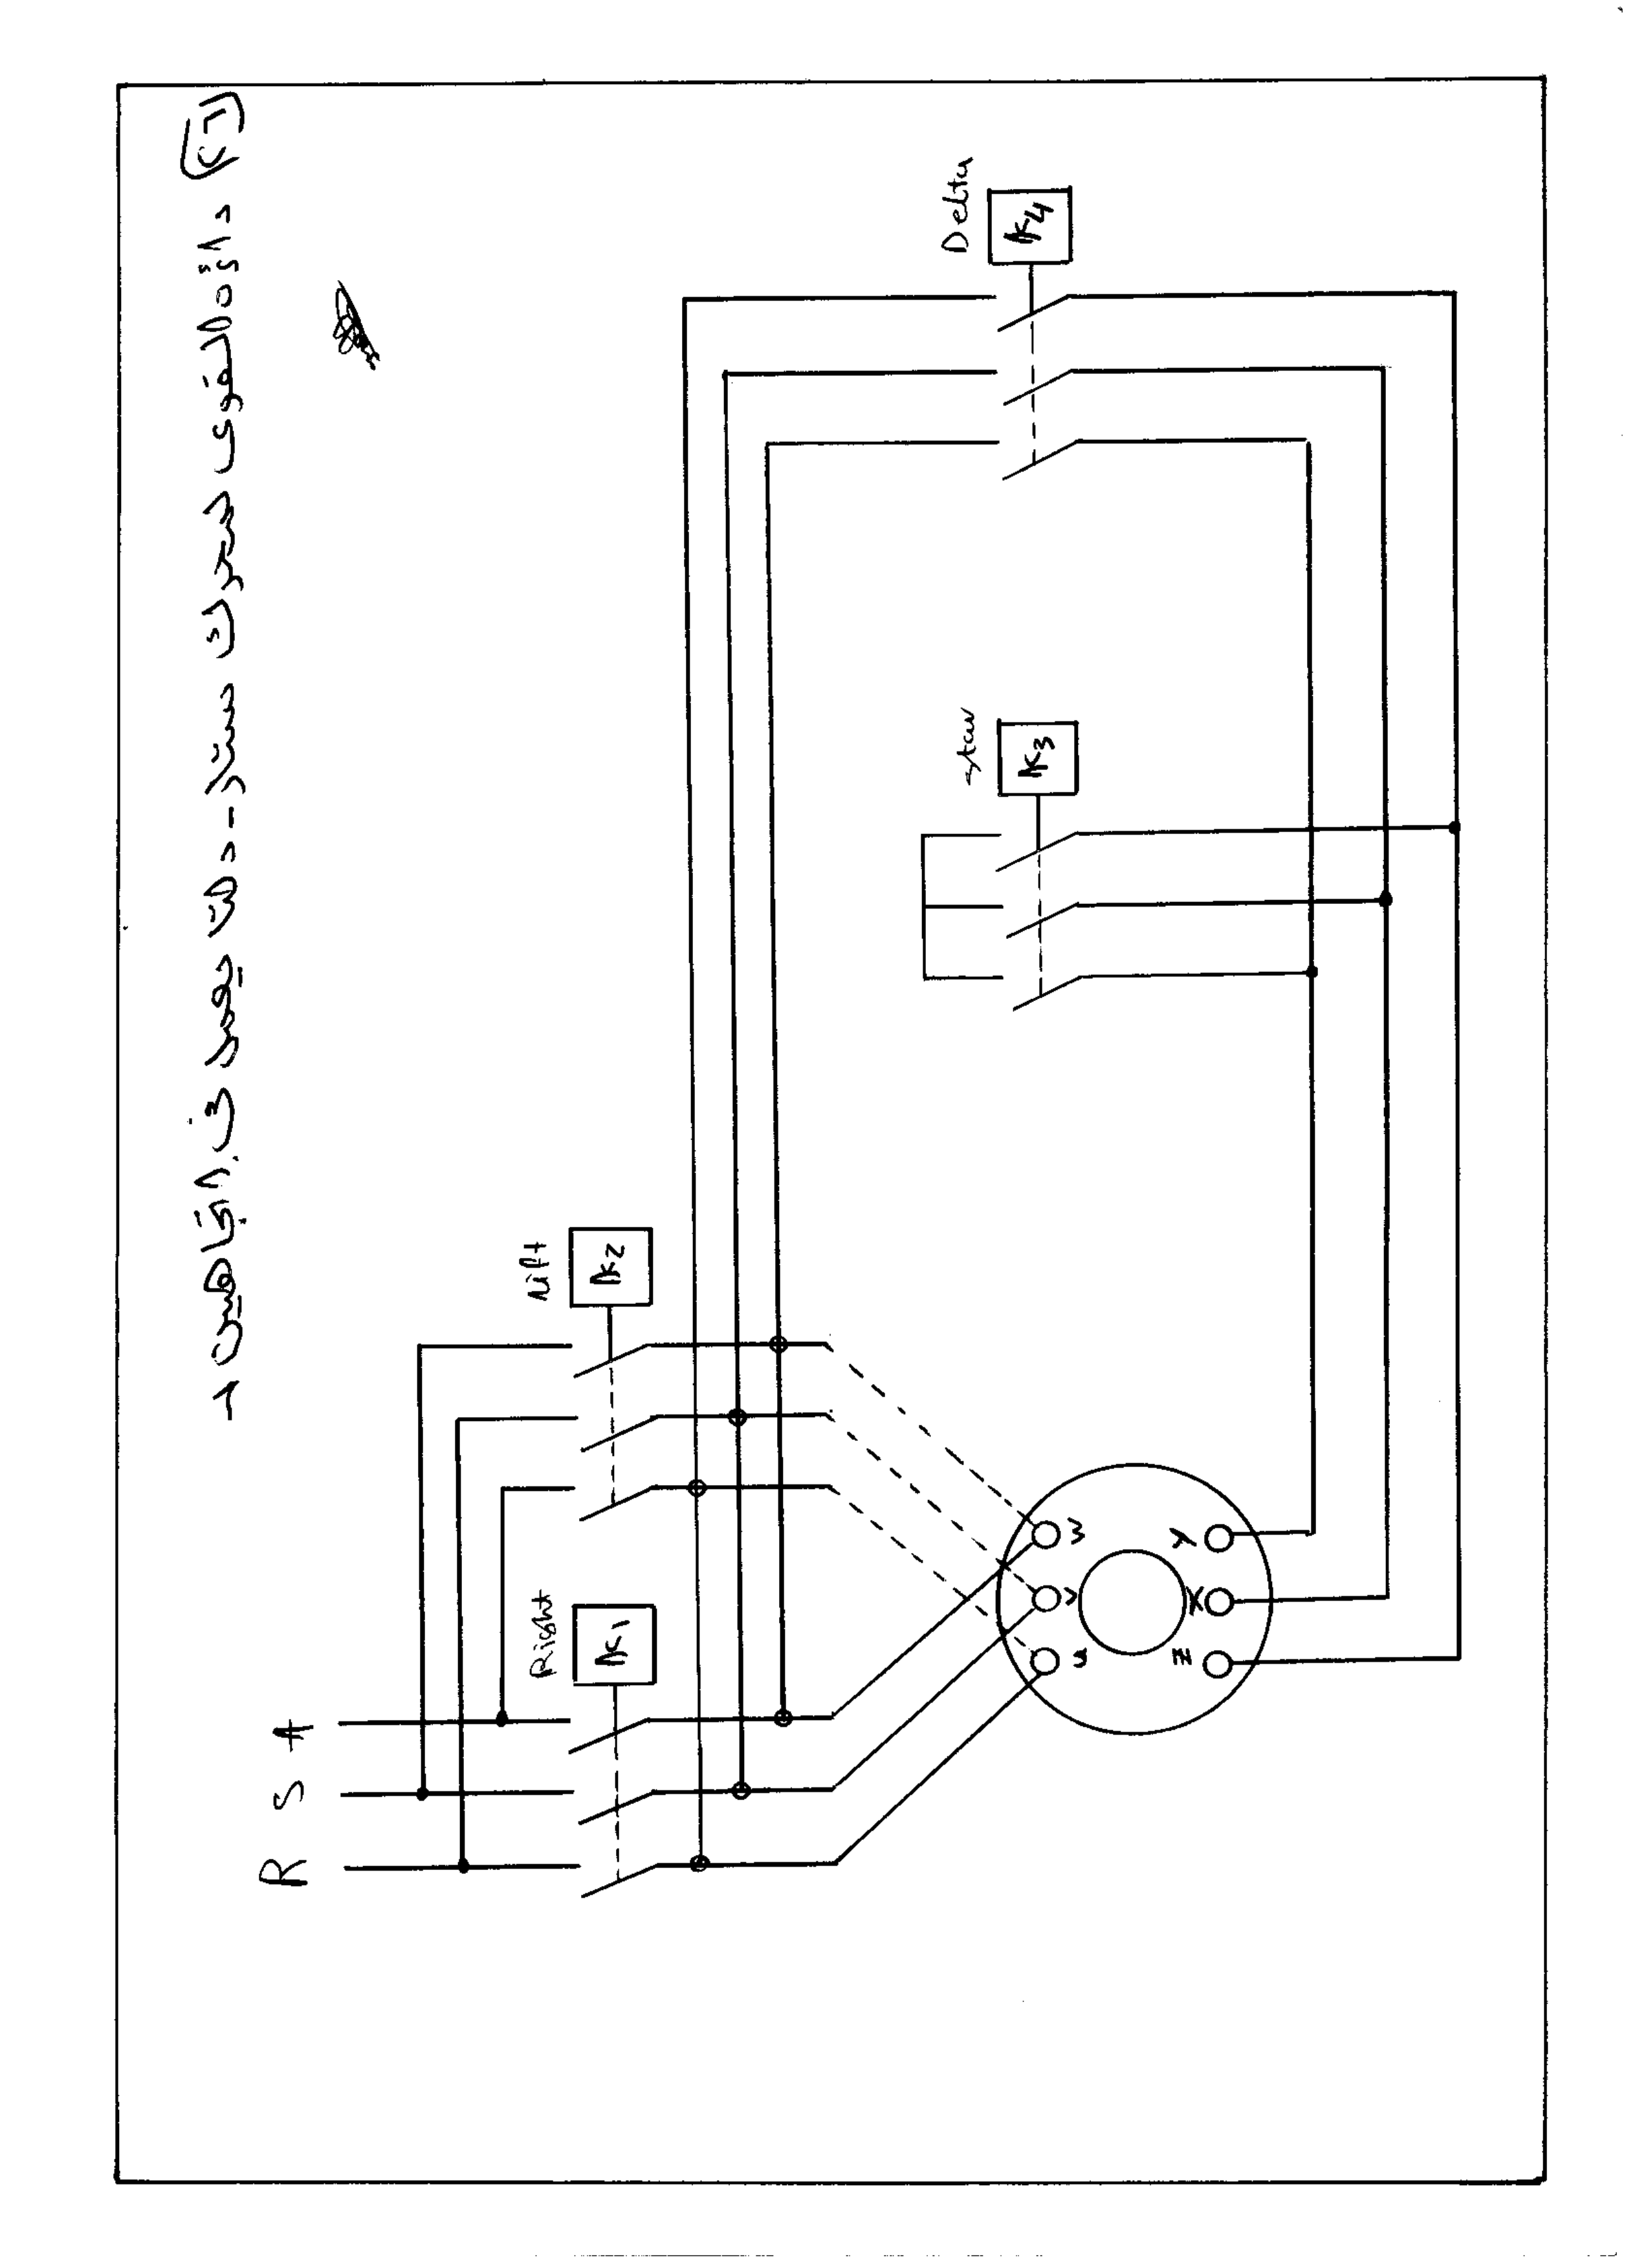 (٢٦) دائرة القوى لمحرك ستار - دلتا يعمل فى اتجاهين :-
R S t
Right
K1
Lift
K2
star
K3
Delta
K4
U V W
Z X Y